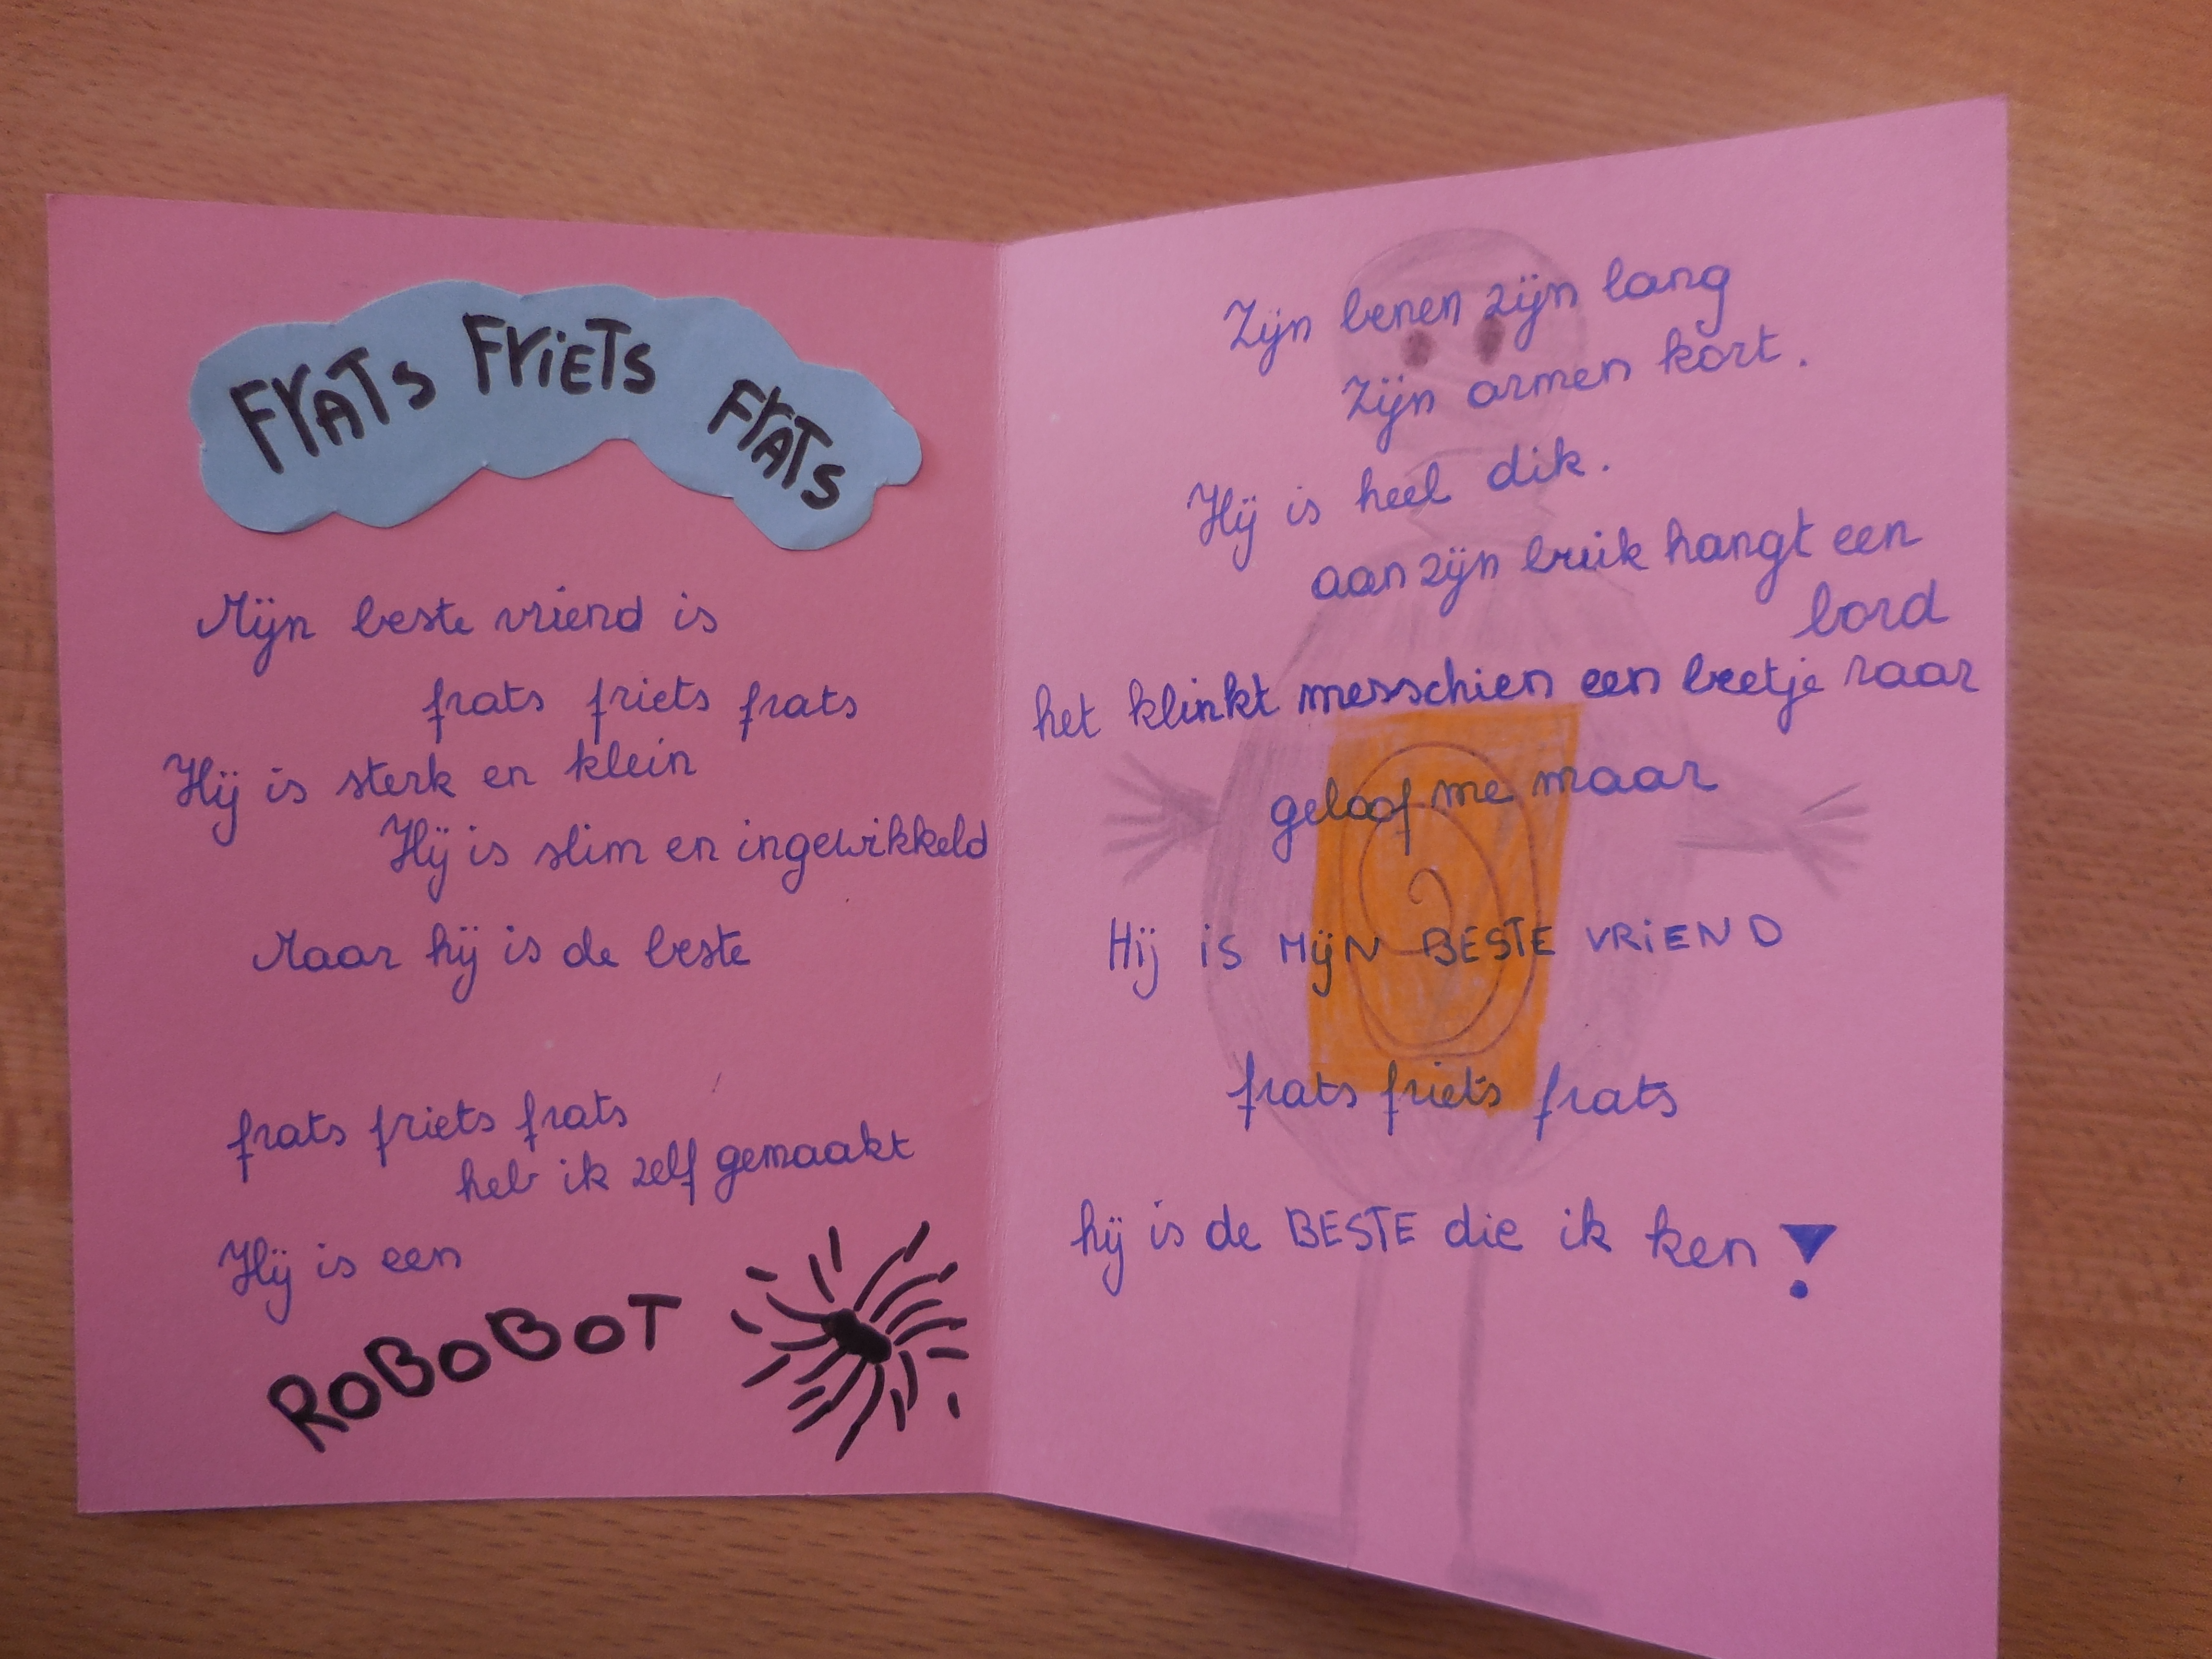 FrATs FriETs FrATs
Mijn beste vriend is
frats friets frats
Hij is sterk en klein
Hij is slim en ingewikkeld
Maar hij is de beste
frats friets frats
heb ik zelf gemaakt
Hij is een
RoBoBoT
Zijn benen zijn lang
Zijn armen kort.
Hij is heel dik.
aan zijn buik hangt een
bord
het klinkt messchien een beetje raar
geloof me maar
Hij is MijN BESTE VRiEND
frats friets frats
hij is de BESTE die ik ken!